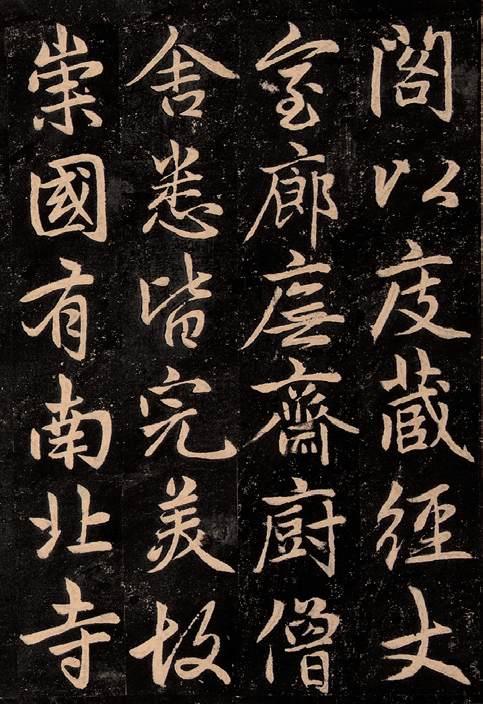 閣以庋藏經丈
室廊廡齋厨僧
舍悉皆完美故
崇國有南北寺